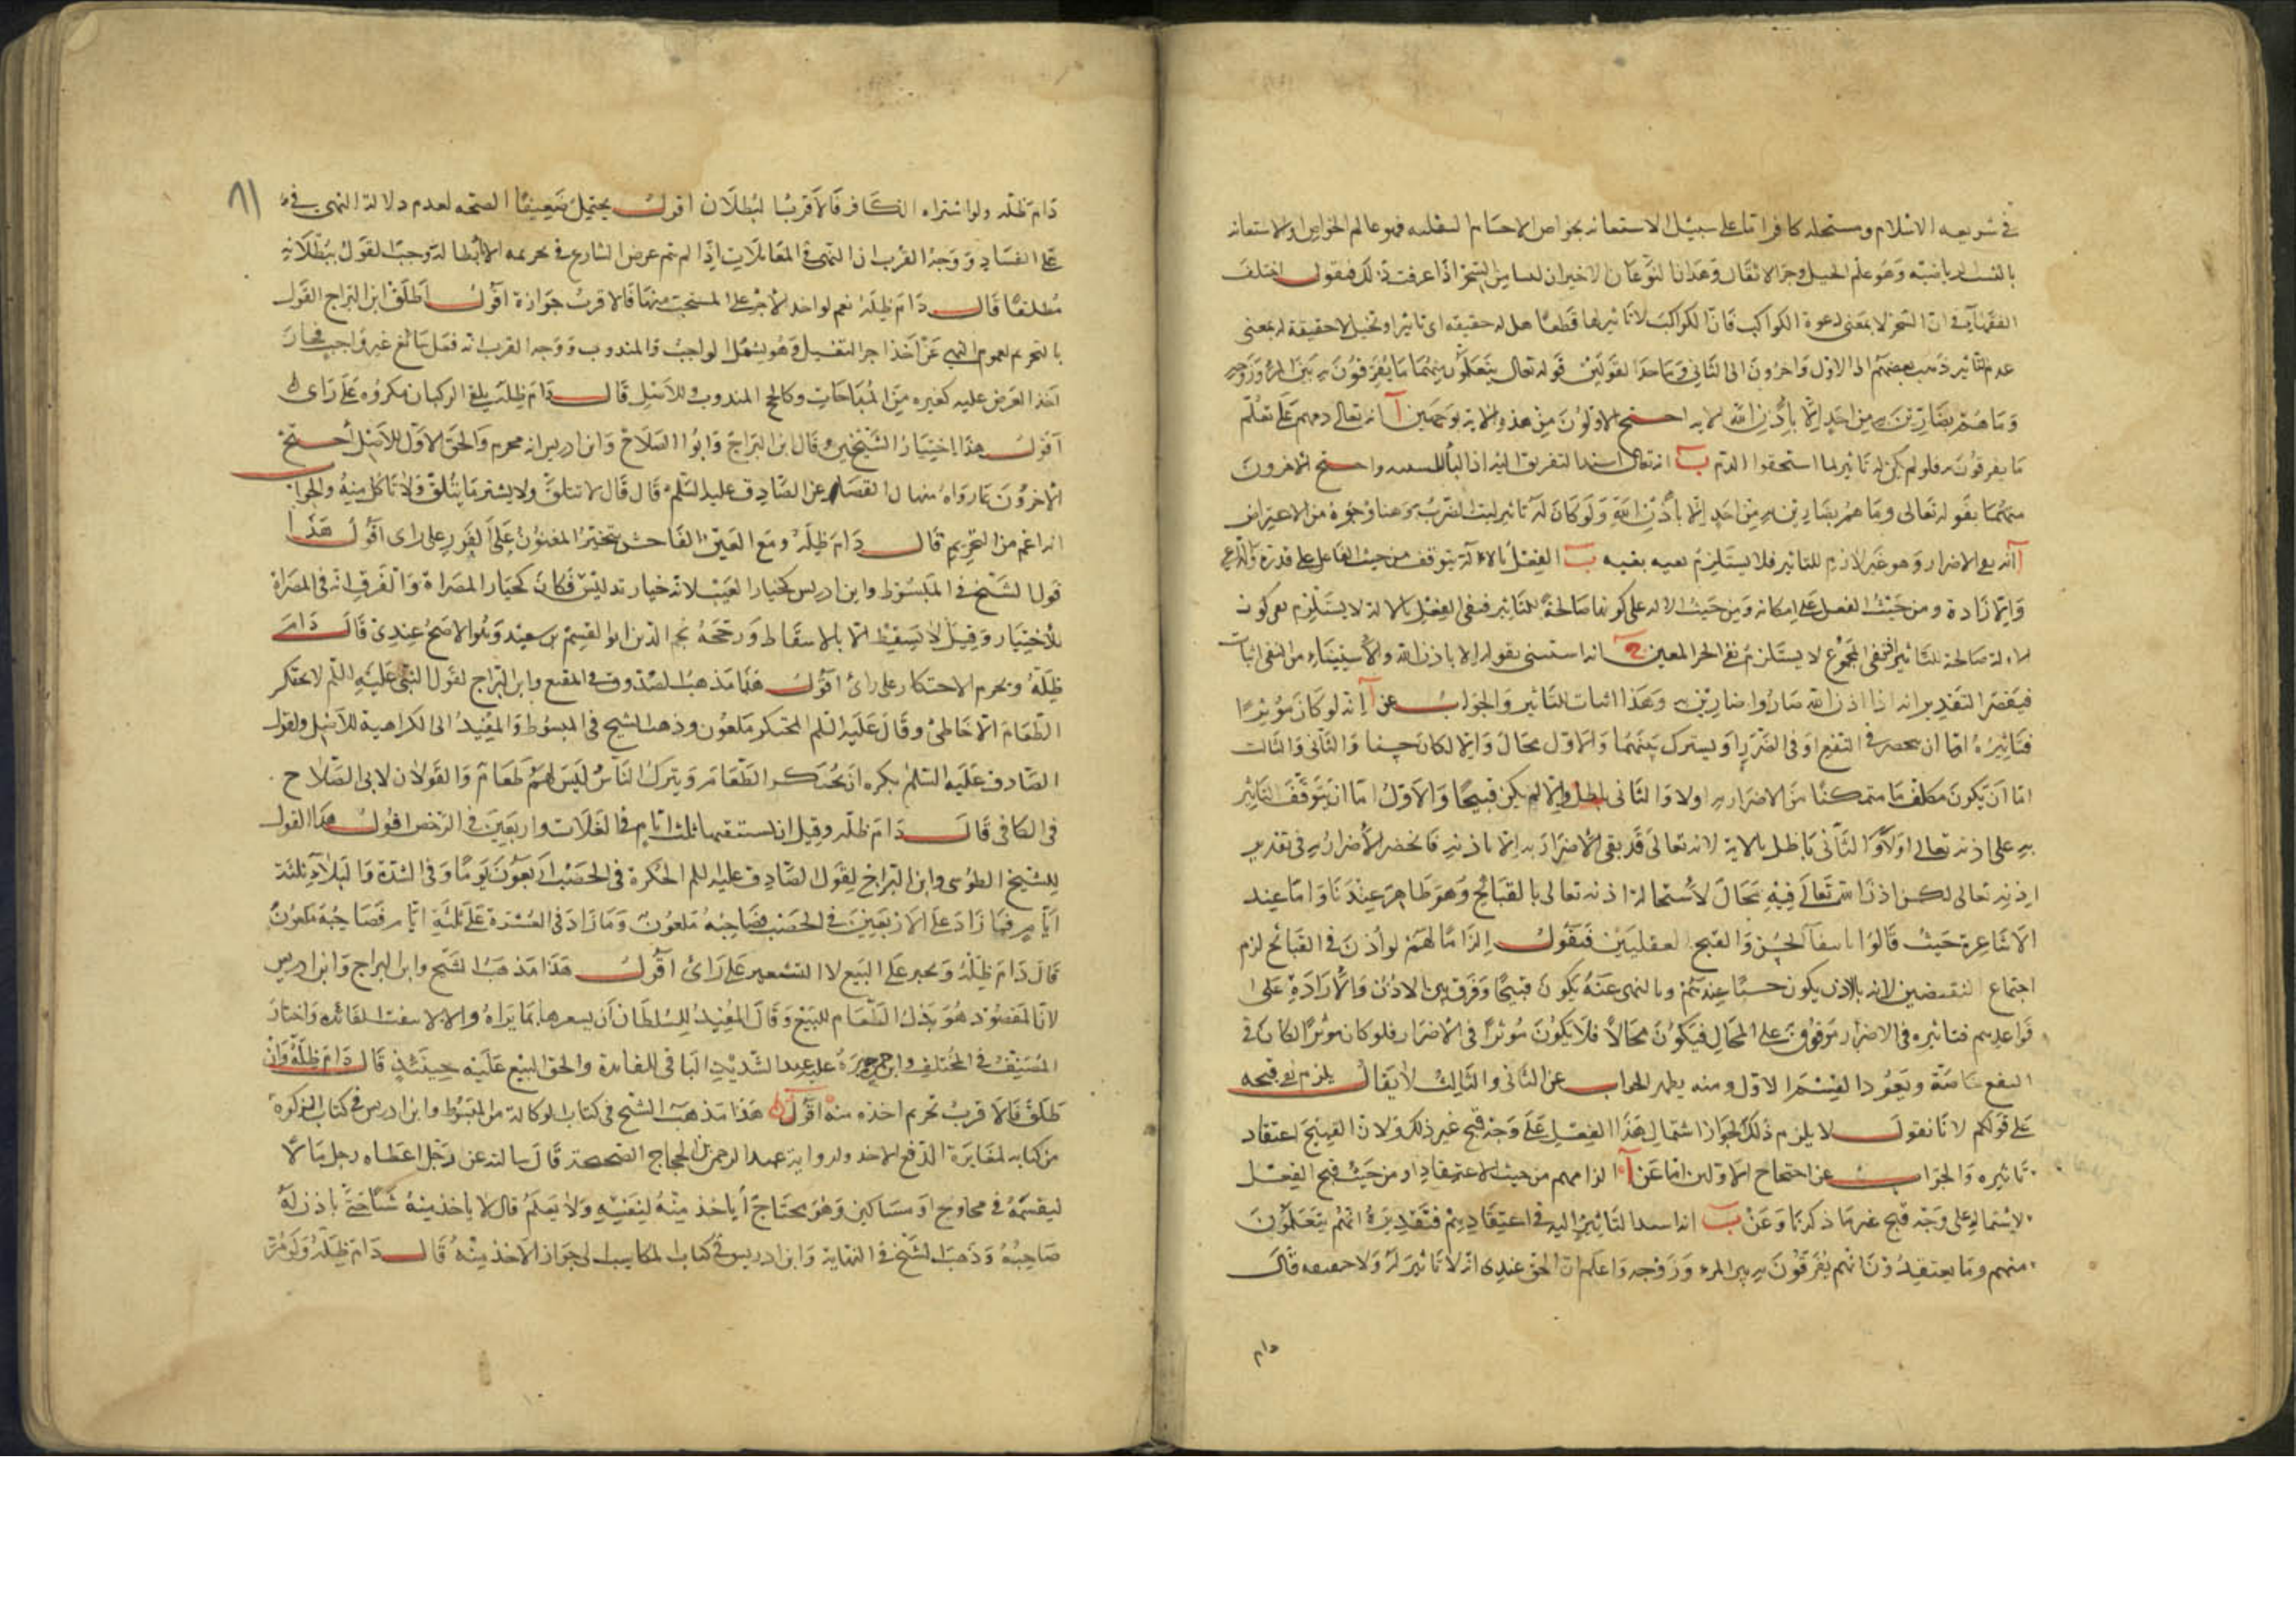 في شريعة الاسلام ومستحله كافر اما على سبيل الاستعانه بخواص الاجسام السفليه فهو عالم الخواص او الاستعانه
بالنسب الرياضيه وهو علم الحيل وجر الاثقال وهذان النوعان الاخيران ليسا من السحر اذا عرفت ذلك فنقول اختلف
الفقهآء في ان السحر لا بمعنى دعوة الكواكب فان الكواكب لا تاثير لها قطعا هل له حقيقه اى تاثير او تخيل لا حقيقة له بمعنى
عدم التاثير ذهب بعضهم الى الاول واخرون الى الثاني وهما احد القولين قوله تعالى يتعلمون منهما ما يفرقون به بين المرء وزوجه
وما هم بضارين به من احد الا باذن الله الايه احتج الاولون من هذه الاية بوجهين آ انه تعالى ذمهم على تعلم
ما يفرقون به فلو لم يكن له تاثير لما استحقوا الذم ب انه تعالى اسند التفريق اليه اذ البآء للسببيه واحتج الآخرون
منهما بقوله تعالى وما هم بضارين به من احد الا باذن الله ولو كان له تاثير لثبت الضرب وهنا وجوه من الاعتراض
آ انه نفي الاضرار وهو غير لازم للتاثير فلا يستلزم نفيه نفيه ب الفعل بالالة يتوقف من حيث الفاعل على قدرة والداعي
والارادة ومن حيث الفعل على امكانه ومن حيث الاله على كونها صالحة للتاثير فنفي الفعل بالالة لا يستلزم نفى كون
الالة صالحة للتاثير اذ نفي المجموع لا يستلزم نفي الجزء المعين ج انه استثنى بقوله الا باذن الله والاستثناء من النفي اثبات
فيقصر التقدير انه اذا اذن الله صاروا ضارين به وهذا اثبات للتاثير والجواب عن آ انه لو كان مؤثرا
فتاثيره اما ان ينحصر في النفع او في الضرر او يشترك بينهما والاول محال والا لكان حسنا والثاني والثالث
اما ان يكون مكلف ما متمكنا من الاضرار به اولا والثانى باطل والا لم يكن قبيحا والاول اما ان يتوقف التاثير
به على اذنه تعالى اولا والثاني باطل بالاية لانه تعالى قد نفي الاضرار به الا باذنه فانحصر الاضرار به في تقدير
اذنه تعالى لكن اذن الله تعالى فيه محال لاستحالة اذنه تعالى بالقبائح وهو ظاهر عندنا واما عند
الاشاعرة حيث قالوا بانتفآء الحسن والقبح العقليين فنقول الزاما لهم لو اذن في القبائح لزم
اجتماع النقيضين لانه بالاذن يكون حسنا عندهم وبالنهي عنه يكون قبيحا وفرق بين الاذن والارادة على
قواعدهم فتاثيره في الاضرار موقوف على المحال فيكون محالا فلا يكون مؤثرا في الاضرار فلو كان مؤثرا لكان في
النفع خاصة ويعود القسم الاول ومنه يظهر الجواب عن الثاني والثالث لا يقال يلزم نفي قبحه
على قولكم لانا نقول لا يلزم ذلك لجواز اشتمال هذا الفعل على وجه قبح غير ذلك ولان القبيح اعتقاد
تاثيره والجواب عن احتجاج الاولين اما عن آ الزامهم من حيث الاعتقاد او من حيث قبح الفعل
لاشتماله على وجه قبح غير ما ذكرنا وعن ب انه اسند التاثير اليه في اعتقادهم فتقديره انهم يتعلمون
منهم وما يعتقدون انهم يفرقون به بين المرء وزوجه واعلم ان الحق عندى انه لا تاثير له ولا حقيقه قال
دام
٨١
دام ظله ولو اشتراه الكافر فالاقرب البطلان اقول يحتمل ضعيفا الصحه لعدم دلالة النهي فيه
على الفساد ووجه القرب ان النهي في المعاملات اذا لم يتم غرض الشارع في تحريمه الا بابطاله وجب القول ببطلانه
مطلقا قال دام ظله نعم لو اخذ الاجر على المستحب منها فالاقرب جوازه اقول اطلق ابن البراج القول
بالتحريم لعموم النهي عن اخذ اجر التغسيل وهو يشمل الواجب والمندوب ووجه القرب انه فعل سائغ غير واجب فجاز
اخذ العوض عليه كغيره من المباحات وكالحج المندوب وللاصل قال دام ظله تلقي الركبان مكروه على راى
اقول هذا اختيار الشيخين وقال ابن البراج وابو الصلاح وابن ادريس انه محرم والحق الاول للاصل احتج
الآخرون بما رواه منهال القصاب عن الصادق عليه السلم قال قال لا تتلق ولا يشتر ما يتلقى ولا تاكل منه والجواب
انه اعم من التحريم قال دام ظله ومع الغبن الفاحش يتخير المغبون على الفور على راى اقول هذا
قول الشيخ في المبسوط وابن ادريس كخيار العيب لانه خيار تدليس فكان كخيار المصراة والفرق انه في المصراة
للاختيار وقيل لا يسقط الا بالاسقاط ورجحه نجم الدين ابو القسم بن سعيد وهو الاصح عندى قال دام
ظله ويحرم الاحتكار على رائ اقول هذا مذهب الصدوق في المقنع وابن البراج لقول النبي عليه السلم لا يحتكر
الطعام الا خاطئ وقال عليه السلم المحتكر ملعون وذهب الشيخ في المبسوط والمفيد الى الكراهية للاصل ولقول
الصادق عليه السلم يكره ان يحتكر الطعام ويترك الناس ليس لهم طعام والقولان لابى الصلاح
في الكافي قال دام ظله وقيل ان يستبقيها ثلث ايام في الغلات واربعين في الرخص اقول هذا القول
للشيخ الطوسى وابن البراج لقول الصادق عليه السلم الحكرة في الخصب اربعون يوما وفي الشدة والبلآء ثلثة
ايام فما زاد على الاربعين في الخصب فصاحبه ملعون وما زاد في العسرة على ثلثة ايام فصاحبه ملعون
قال دام ظله ويجبر على البيع لا التسعير على رائ اقول هذا مذهب الشيخ وابن البراج وابن ادريس
لان المقصود هو بذل الطعام للبيع وقال المفيد للسلطان ان يسعرها بما يراه والا لانتفت الفائده واختار
المصنف في المختلف وابن حمزة عليه عند التشديد الباقي للفائدة والحق البيع عليه حينئذ قال دام ظله وان
طلق فالاقرب تحريم اخذه منه اقول هذا مذهب الشيخ في كتاب الوكالة من المبسوط وابن ادريس في كتاب الزكوة
من كتابه لمغايرة الدفع الاخذ ولرواية عبد الرحمن بن الحجاج الصحيحة قال سالته عن رجل اعطاه رجل مالا
ليقسمه في محاويج او مساكين وهو محتاج أياخذ منه لنفسه ولا يعلمه قال لا ياخذ منه شيئا حتى ياذن له
صاحبه وذهب الشيخ في النهاية وابن ادريس في كتاب المكاسب الى جواز الاخذ منه قال دام ظله ولو مر